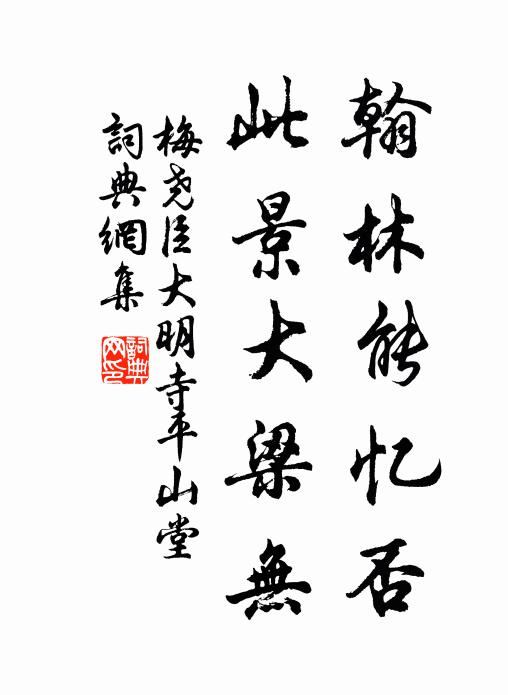 翰林能忆否
此景大梁無
梅尧臣大明寺平山堂
詞典網集
詞典網印